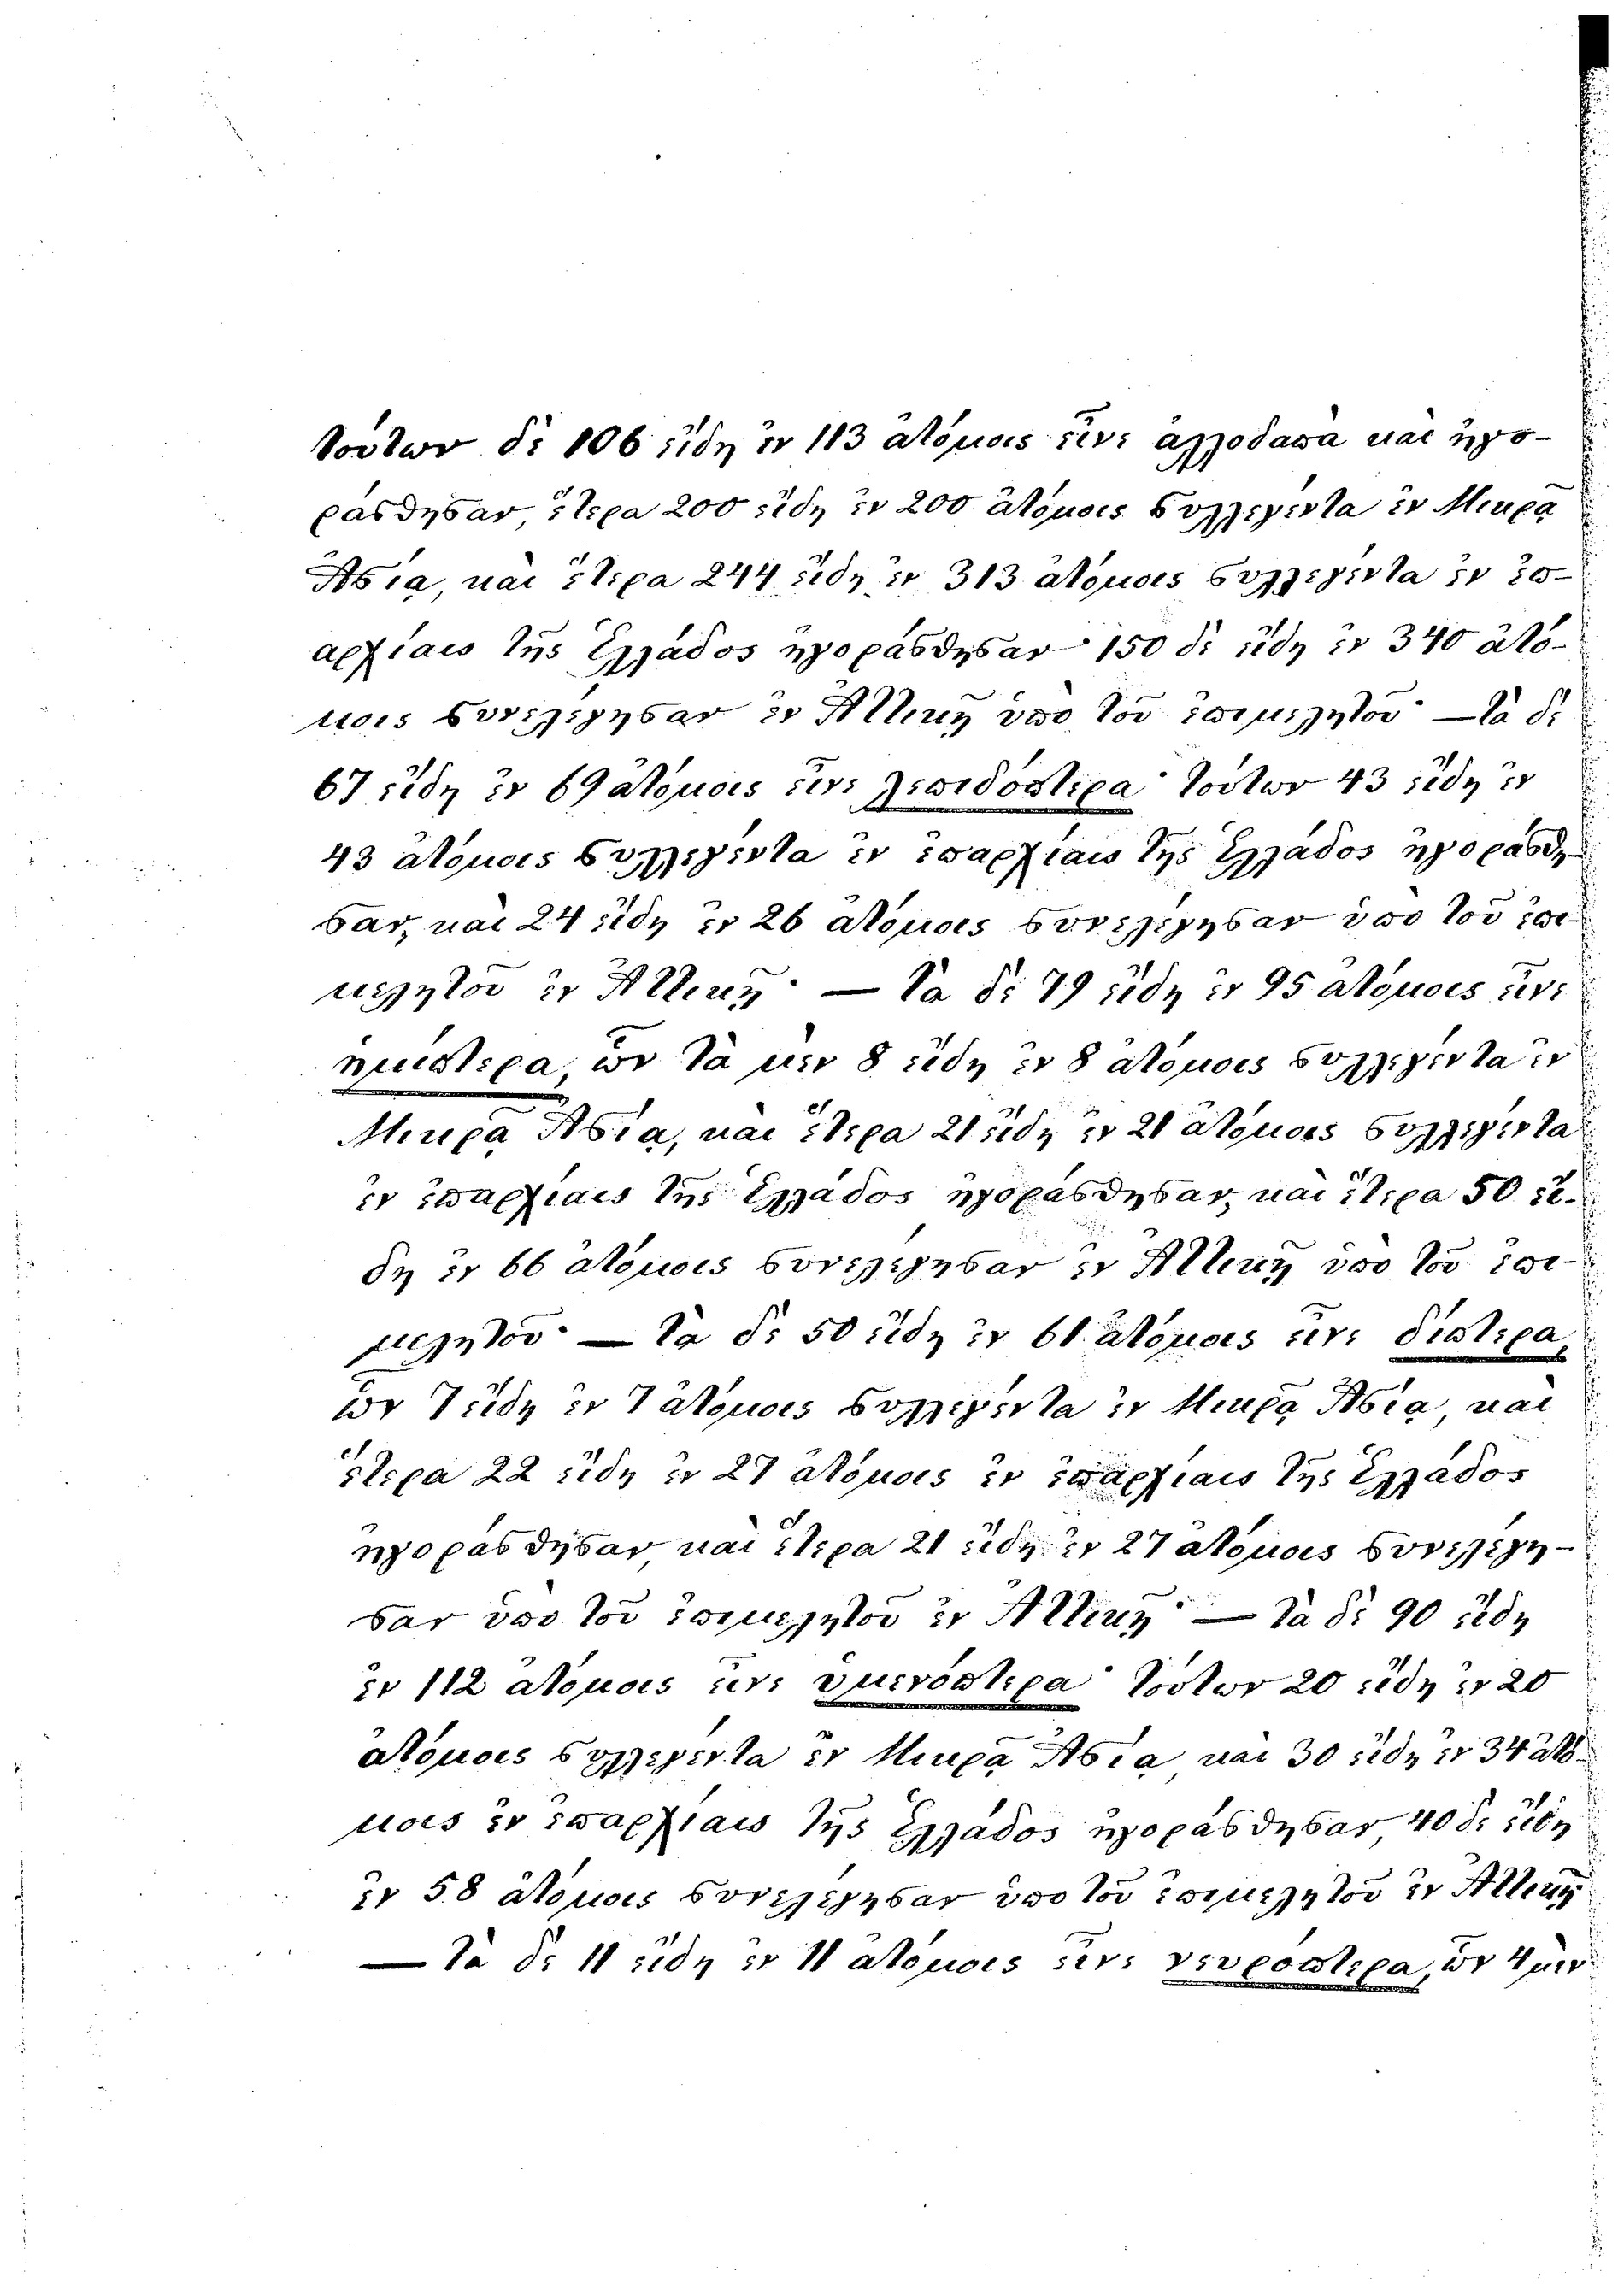 τούτων δὲ 106 εἴδη ἐν 113 ἀτόμοις εἶνε ἀλλοδαπὰ καὶ ἠγο-
ράσθησαν, ἕτερα 200 εἴδη ἐν 200 ἀτόμοις συλλεγέντα ἐν Μικρᾷ
Ἀσίᾳ, καὶ ἕτερα 244 εἴδη ἐν 313 ἀτόμοις συλλεγέντα ἐν ἐπ-
αρχίαις τῆς Ἑλλάδος ἠγοράσθησαν· 150 δὲ εἴδη ἐν 340 ἀτό-
μοις συνελέγησαν ἐν Ἀττικῇ ὑπὸ τοῦ ἐπιμελητοῦ· — τὰ δὲ
67 εἴδη ἐν 69 ἀτόμοις εἶνε λεπιδόπτερα· τούτων 43 εἴδη ἐν
43 ἀτόμοις συλλεγέντα ἐν ἐπαρχίαις τῆς Ἑλλάδος ἠγοράσθη-
σαν, καὶ 24 εἴδη ἐν 26 ἀτόμοις συνελέγησαν ὑπὸ τοῦ ἐπι-
μελητοῦ ἐν Ἀττικῇ· — Τὰ δὲ 79 εἴδη ἐν 95 ἀτόμοις εἶνε
ἡμίπτερα, ὧν τὰ μὲν 8 εἴδη ἐν 8 ἀτόμοις συλλεγέντα ἐν
Μικρᾷ Ἀσίᾳ, καὶ ἕτερα 21 εἴδη ἐν 21 ἀτόμοις συλλεγέντα
ἐν ἐπαρχίαις τῆς Ἑλλάδος ἠγοράσθησαν, καὶ ἕτερα 50 εἴ-
δη ἐν 66 ἀτόμοις συνελέγησαν ἐν Ἀττικῇ ὑπὸ τοῦ ἐπι-
μελητοῦ· — Τὰ δὲ 50 εἴδη ἐν 61 ἀτόμοις εἶνε δίπτερα,
ὧν 7 εἴδη ἐν 7 ἀτόμοις συλλεγέντα ἐν Μικρᾷ Ἀσίᾳ, καὶ
ἕτερα 22 εἴδη ἐν 27 ἀτόμοις ἐν ἐπαρχίαις τῆς Ἑλλάδος
ἠγοράσθησαν, καὶ ἕτερα 21 εἴδη ἐν 27 ἀτόμοις συνελέγη-
σαν ὑπὸ τοῦ ἐπιμελητοῦ ἐν Ἀττικῇ· — Τὰ δὲ 90 εἴδη
ἐν 112 ἀτόμοις εἶνε ὑμενόπτερα· τούτων 20 εἴδη ἐν 20
ἀτόμοις συλλεγέντα ἐν Μικρᾷ Ἀσίᾳ, καὶ 30 εἴδη ἐν 34 ἀτό-
μοις ἐν ἐπαρχίαις τῆς Ἑλλάδος ἠγοράσθησαν, 40 δὲ εἴδη
ἐν 58 ἀτόμοις συνελέγησαν ὑπὸ τοῦ ἐπιμελητοῦ ἐν Ἀττικῇ
— Τὰ δὲ 11 εἴδη ἐν 11 ἀτόμοις εἶνε νευρόπτερα, ὧν 4 μὲν